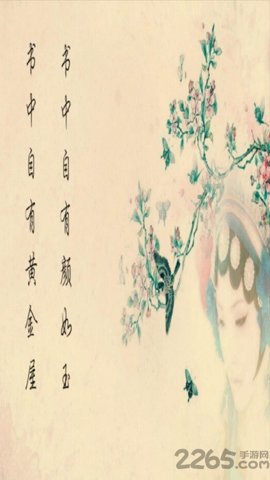 书中自有颜如玉
书中自有黄金屋
2265手游网
.com